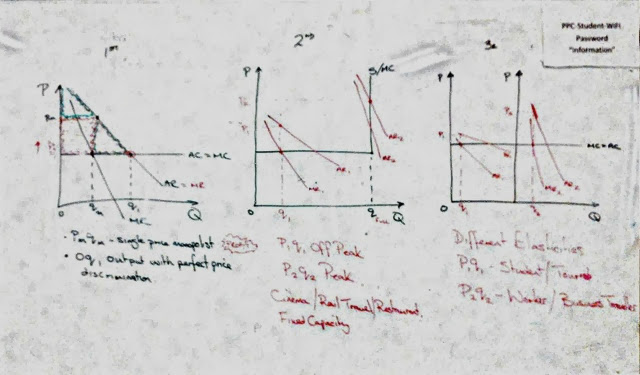 PPC-Student-WiFi
Password
"information"
1st
2nd
3rd
P
Pm
AC = MC
AR = MR
MR
O
qm
q1
Q
• Pm qm - single price monopolist
• Oq1 output with perfect price
discrimination
P
S/MC
P2
P1
AR1
MR1
AR2
O
q1
Q
P1 q1 Off Peak
P2 q2 Peak
Cinema/Rail Travel/Restaurant
Fixed Capacity
P
P
P1
P2
MC = AC
MR2
AR2
O
q1
q2
Q
Different Elasticities
P1 q1 - Student/
P2 q2 - Worker/Business Traveller